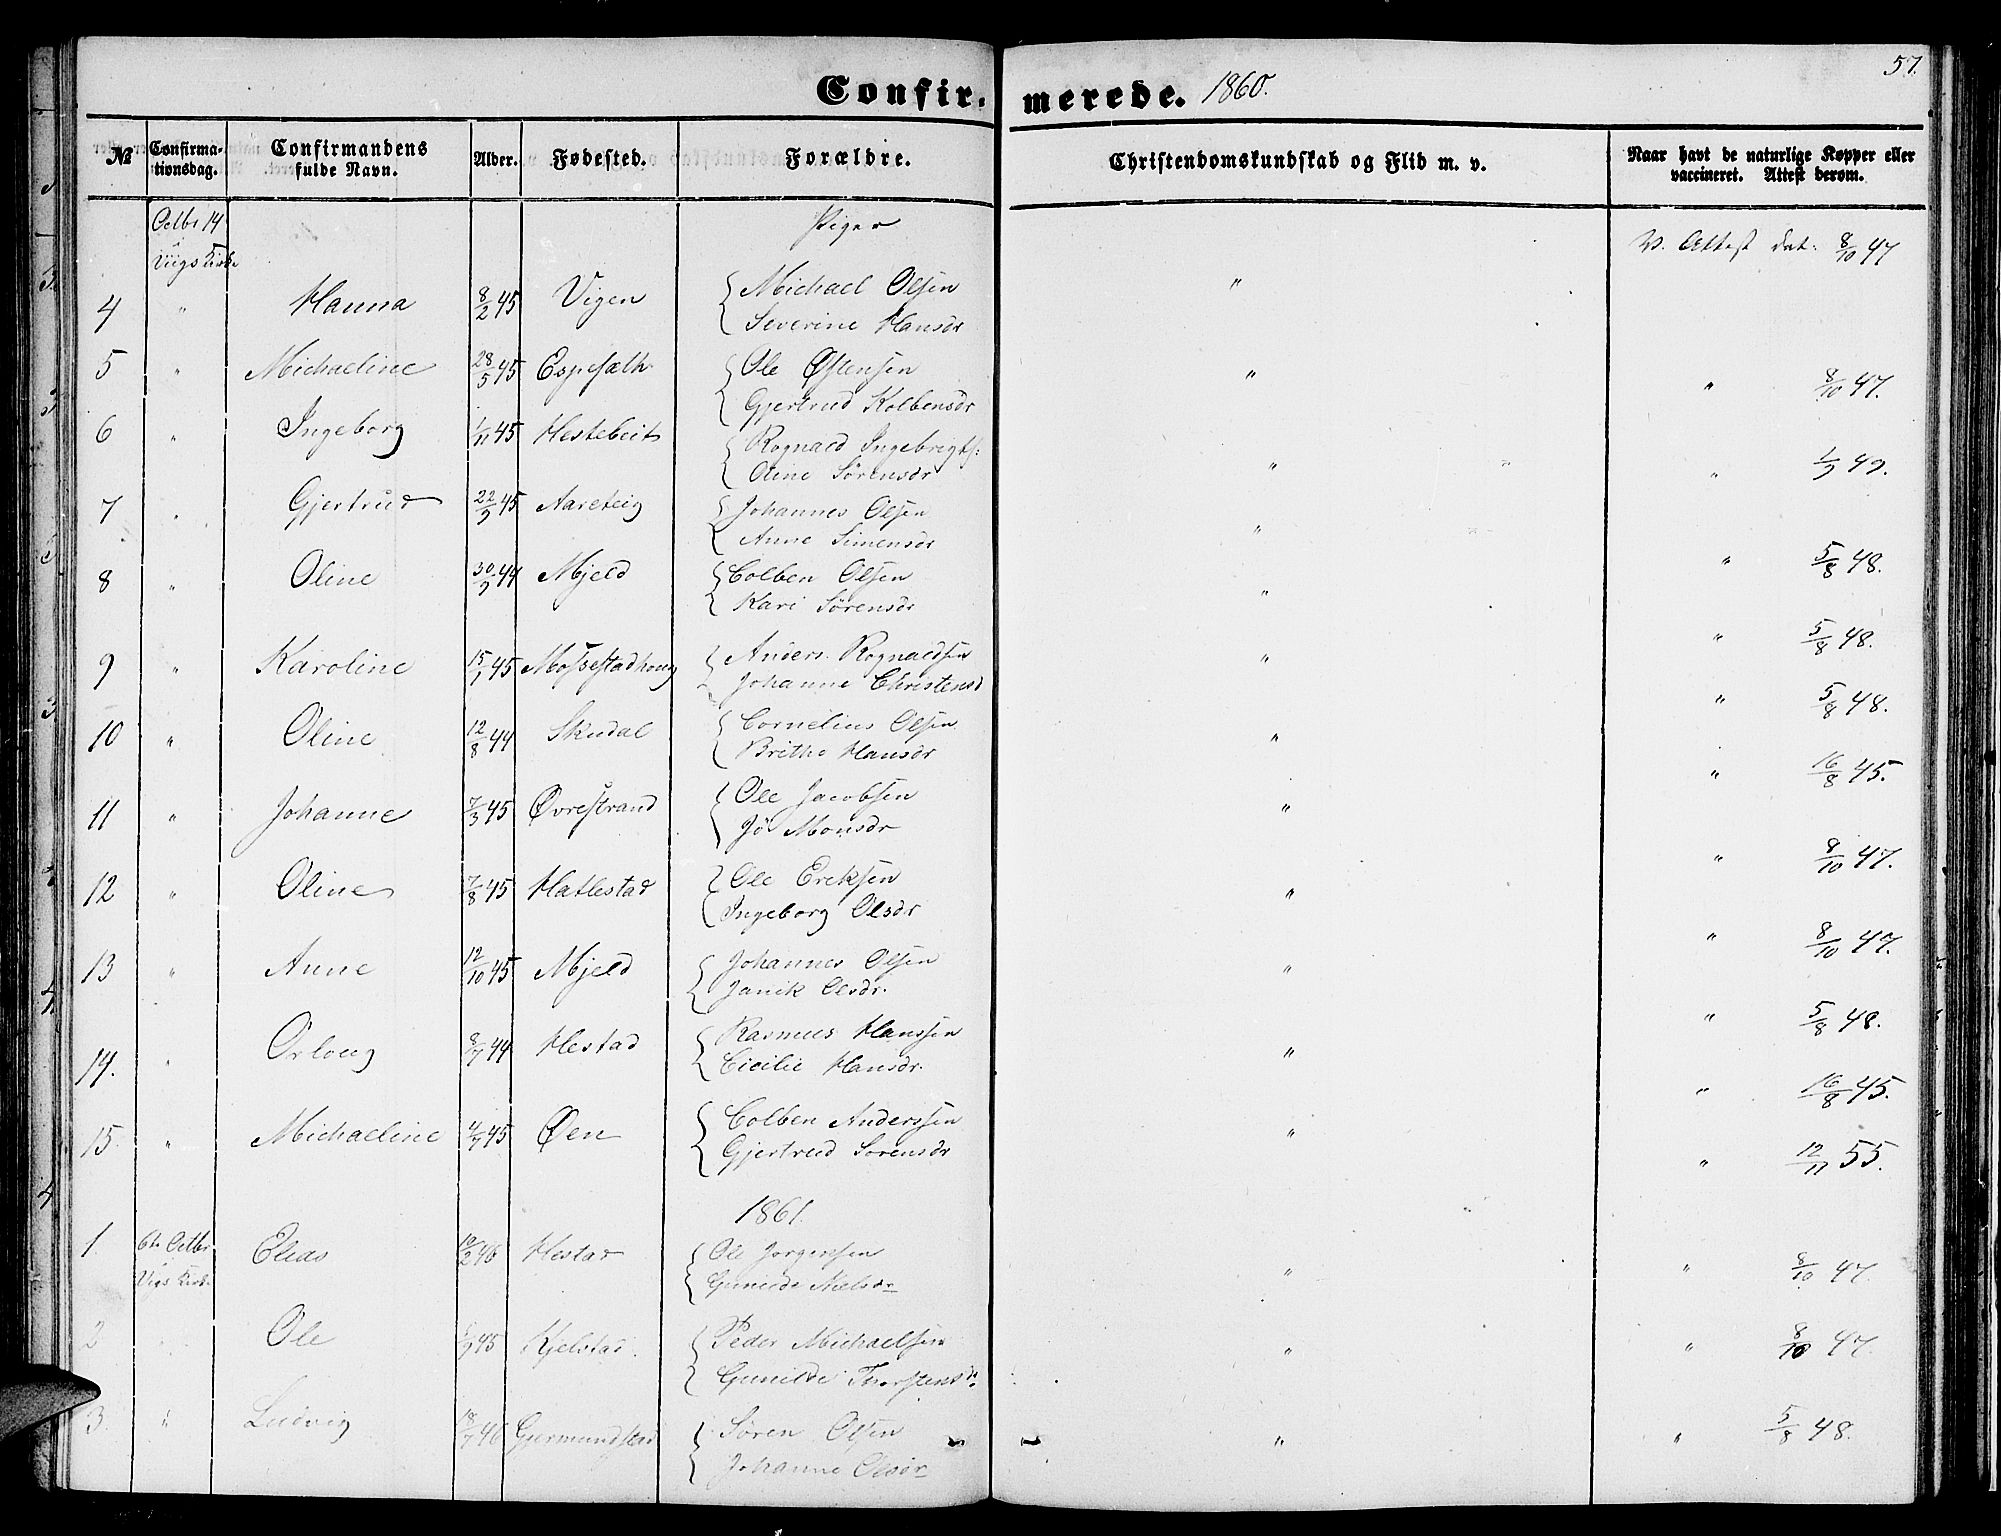 57.
Confir-merede. 1860.
№ Confirma-tionsdag. Confirmandens fulde Navn. Alder. Fødested. Forældre. Christendomskundskab og Flid m. v. Naar havt de naturlige Kopper eller vaccineret. Attest derom.
Octbr 14 Piger
Viigs Kirke V. Attest dat: 8/10 47
4 " Hanna 8/2 45 Vigen Michael Olsen "
Severine Hansdr
5 " Michaeline 28/5 45 Espesæth Ole Østensen " " 8/10 47.
Gjertrud Kolbensdr
6 " Ingeborg 1/11 45 Hestebeit Rognald Ingebrigts: " " 1/9 49.
Oline Sørensdr
7 " Gjertrud 22/9 45 Aareteig Johannes Olsen "
Anne Simensdr
8 " Oline 30/9 44 Mjeld Colben Olsen " " 5/8 48.
Kari Sørensdr
9 " Karoline 15/1 45 Mossestadhoug Anders Rognaldsen " " 5/8 48.
Johanne Christensd
10 " Oline 12/8 44 Skudal Cornelius Olsen " " 5/8 48.
Brithe Hansdr
" 16/8 45.
11 " Johanne 7/3 45 Øvrestrand Ole Jacobsen "
Jô Monsdr
12 " Oline 7/8 45 Hatlestad Ole Ericksen " " 8/10 47.
Ingeborg Olsdr
13 " Anne 12/10 45 Mjeld Johannes Olsen " " 8/10 47.
Janik Olsdr.
14. " Orloug 8/7 44 Hestad Rasmus Hanssen " " 5/8 48.
Cicilie Hansdr.
" 16/8 45.
15. " Michaeline 4/7 45 Øen Colben Anderssen " " 12/11 55.
Gjertrud Sørensdr
1861.
1 6te Octbr Elias 2 46 Hestad Ole Jørgensen " " 8/10 47.
Vigs Kirke Gunilde Nielsdr
2 " Ole 9 45 Kjelstad. Peder Michaelsen " " 8/10 47.
Gunilde Thorstensdr.
3. " Ludvig 18/7 46 Gjermundstad Søren Olsen " " 5/8 48.
Johanne Olsdr